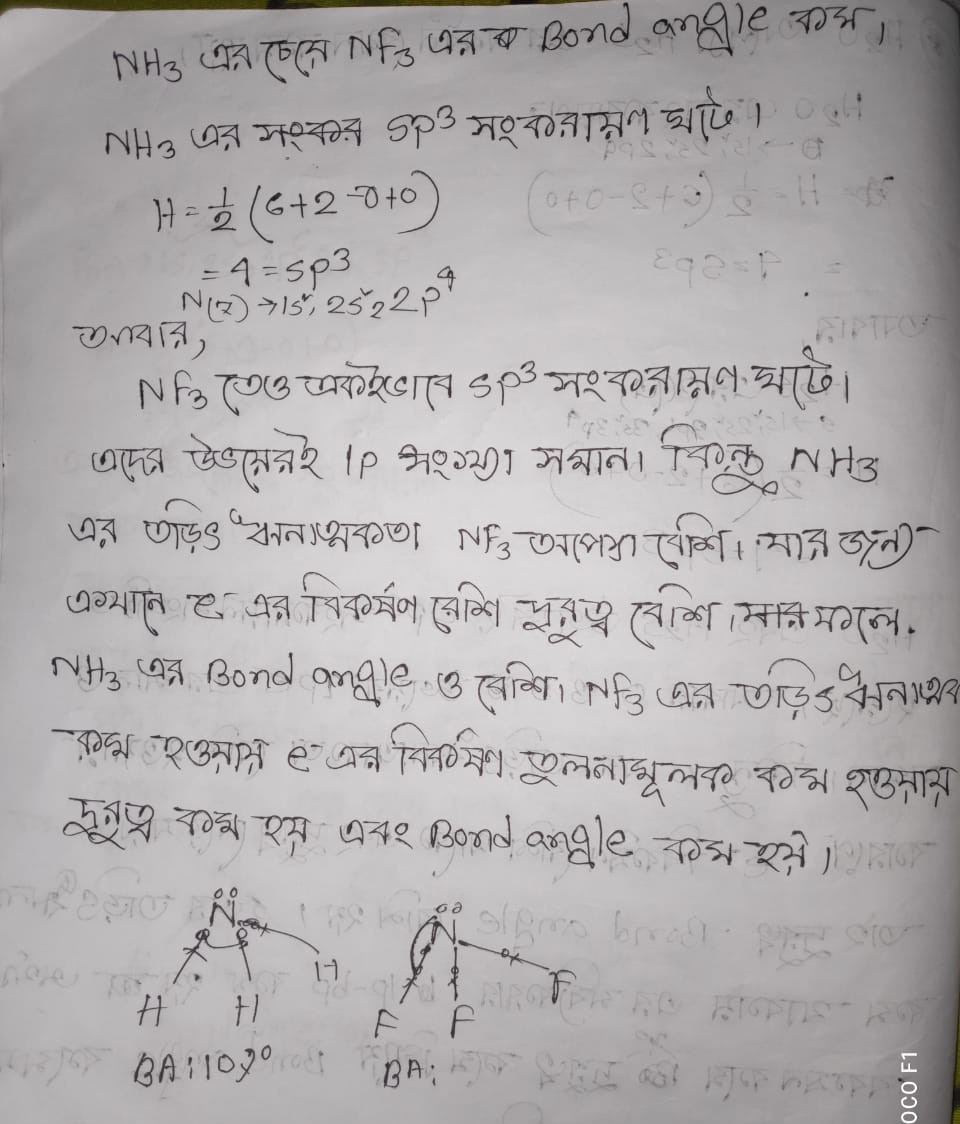 NH₃ এর চেয়ে NF₃ এর Bond angle কম।
NH₃ এর সংকর sp³ সংকরায়ণ ঘটে।
H = ½ (6+2-0+0)
= 4 = sp³
N(7) → 1s², 2s² 2 2p⁴
আবার,
NF₃ তেও একইভাবে sp³ সংকরায়ণ ঘটে।
এদের উভয়েরই lp সংখ্যা সমান। কিন্তু NH₃
এর তড়িৎ ধনাত্মকতা NF₃ অপেক্ষা বেশি। যার জন্য
এখানে e⁻ এর বিকর্ষণ বেশি দূরত্ব বেশি। যার ফলে
NH₃ এর Bond angle ও বেশি। NF₃ এর তড়িৎ ধনাত্মক
কম হওয়ায় e⁻ এর বিকর্ষণ তুলনামূলক কম হওয়ায়
দূরত্ব কম হয় এবং Bond angle কম হয়।
N N
H H H F F F
BA: 107° BA:
OCO F1